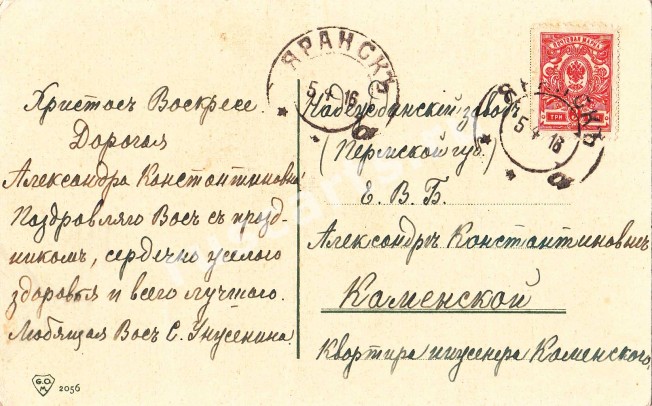 Христосъ Воскресе.
Дорогая
Александра Константиновна
Поздравляю Васъ съ празд-
никомъ, сердечно желаю
здоровья и всего лучшаго.
Любящая Васъ С.
ЯРАНСКЪ
5 4 16
а
заводъ
(Пермской губ.)
Е. В. Б.
Александръ Константиновнъ
Каменской
Квартира инженера Каменскаго
ПОЧТОВАЯ МАРКА
ТРИ
ЯРАНСКЪ
5 4 16
а
G.O.
M.
2056